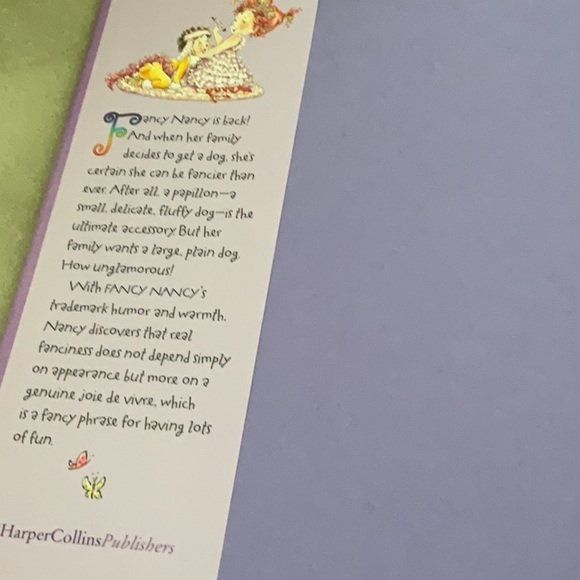 Fancy Nancy is back!
And when her family
decides to get a dog, she's
certain she can be fancier than
ever. After all, a papillon—a
small, delicate, fluffy dog—is the
ultimate accessory. But her
family wants a large, plain dog.
How unglamorous!
With FANCY NANCY's
trademark humor and warmth,
Nancy discovers that real
fanciness does not depend simply
on appearance but more on a
genuine joie de vivre, which
is a fancy phrase for having lots
of fun.
HarperCollinsPublishers